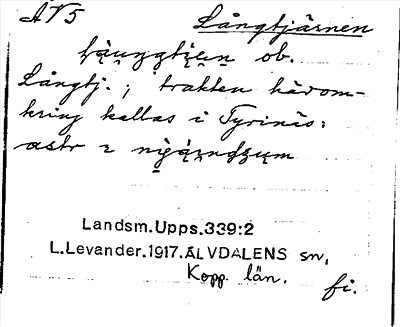 ÄV5 Långtjärnen
ob.
Långtj.; trakten härom-
kring kallas i Tyrinäs:
Landsm.Upps.339:2
L.Levander.1917.ÄLVDALENS sn,
Kopp. län.
fi.